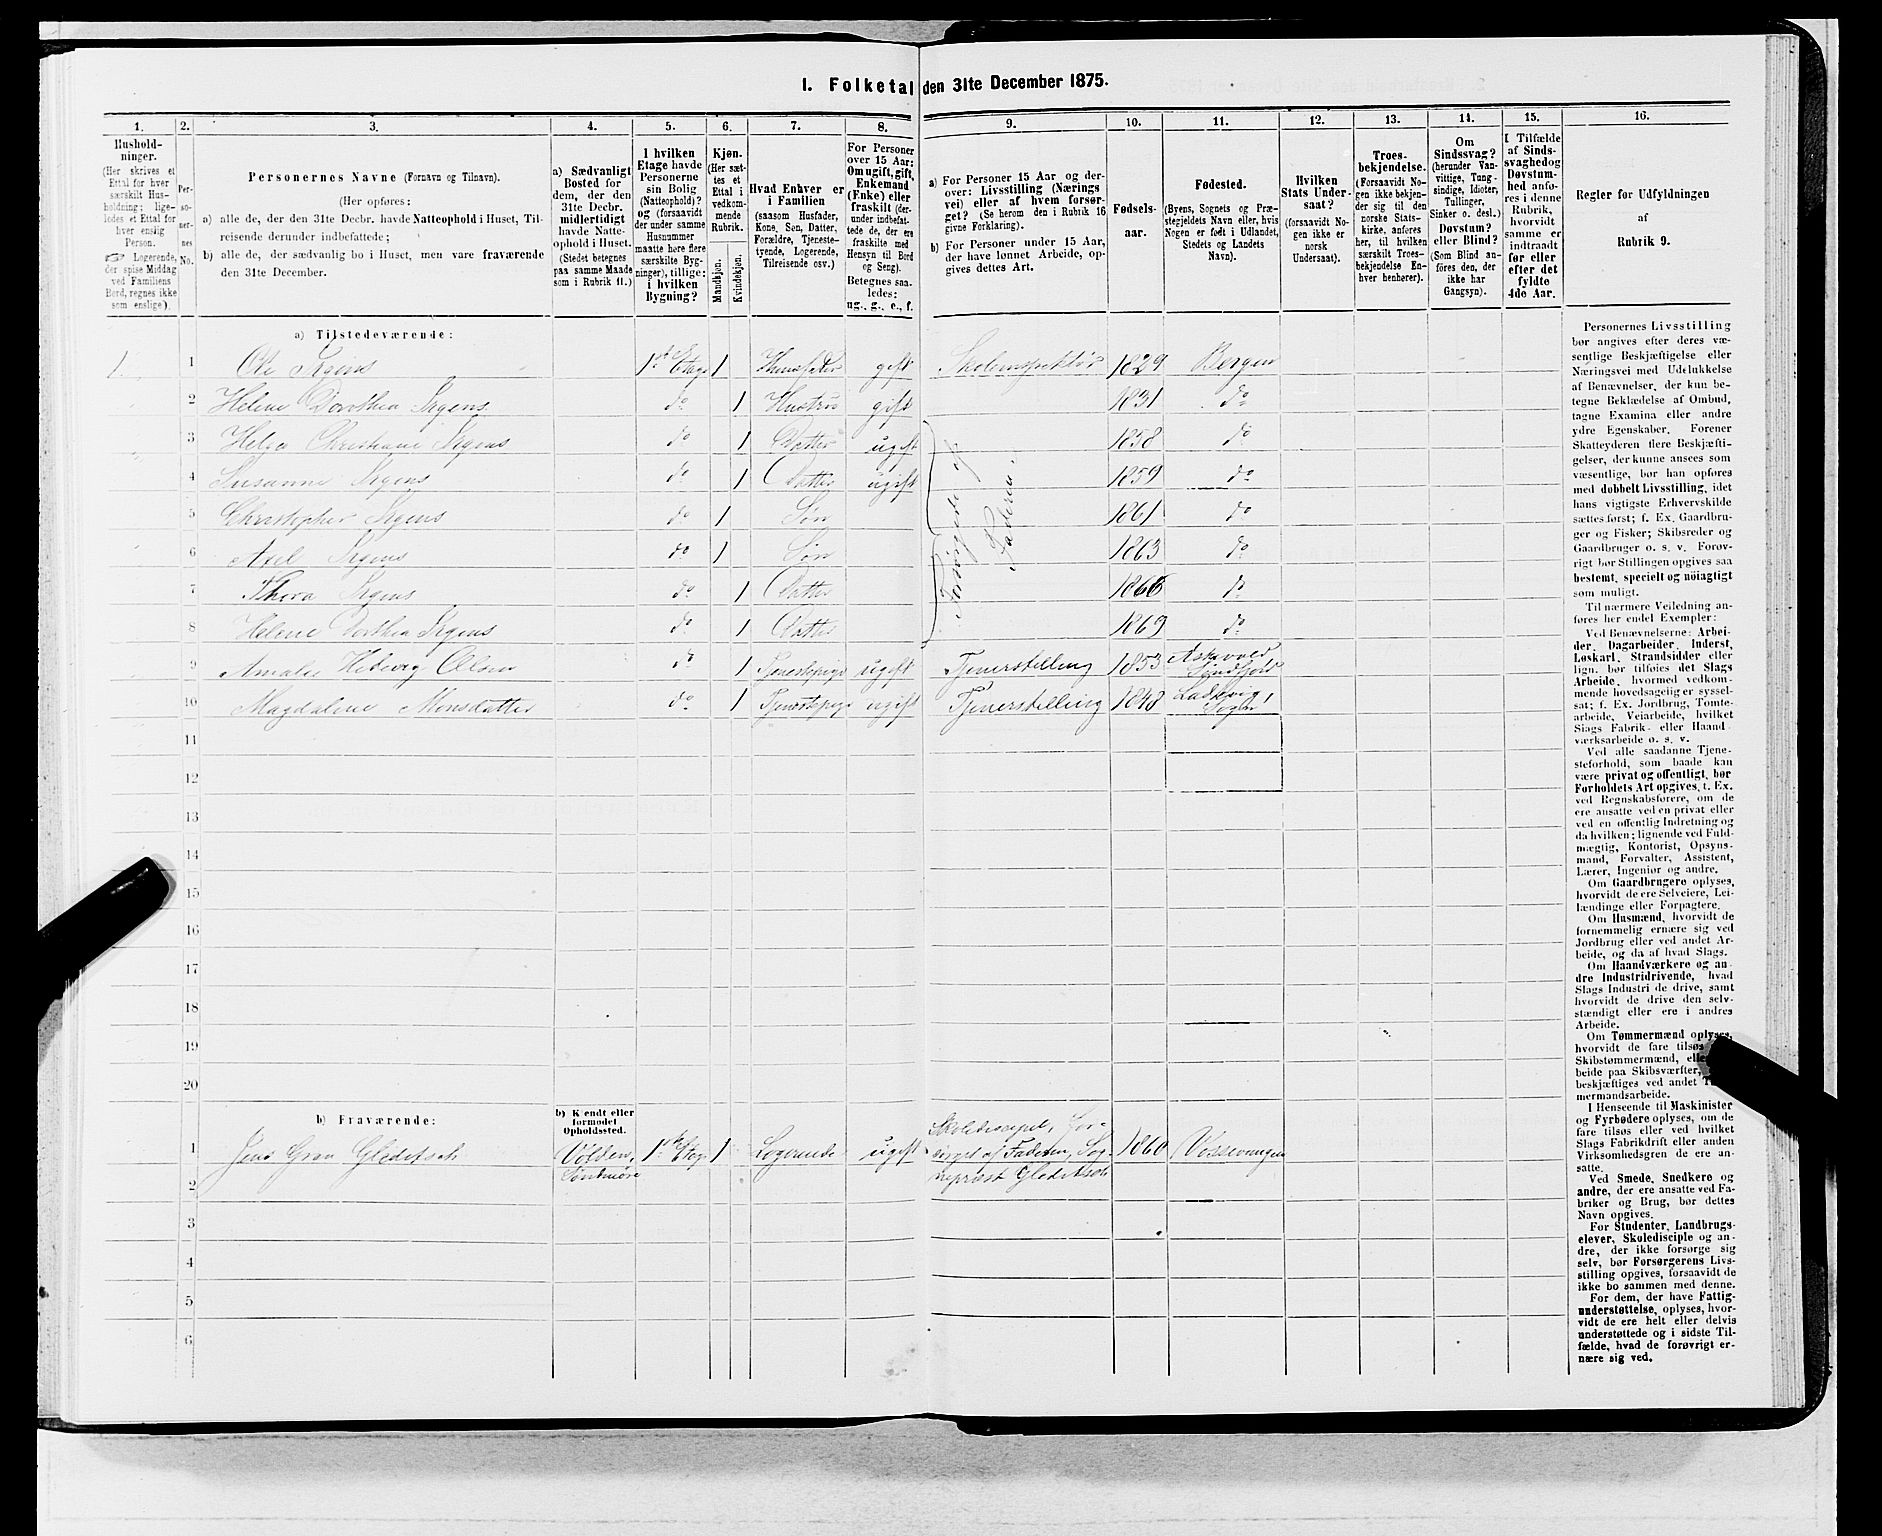 1. Folketal den 31te December 1875.
1. 2. 3. 4. 5. 6. 7. 8. 9. 10. 11. 12. 13. 14. 15. 16.
Hushold-
ninger.
(Her skrives et
Ettal for hver
særskilt Hus-
holdning; lige-
ledes et Ettal for
hver enslig
Person.
Logerende,
der spise Middag
ved Familiens
Bord, regnes ikke
som enslige).
Per-
so-
ner-
nes
No.
Personernes Navne (Fornavn og Tilnavn).
(Her opføres:
a) alle de, der den 31te Decbr. havde Natteophold i Huset, Til-
reisende derunder indbefattede;
b) alle de, der sædvanlig bo i Huset, men vare fraværende
den 31te December.
a) Sædvanligt
Bosted for
dem, der den
31te Decbr.
midlertidigt
havde Natte-
ophold i Huset.
(Stedet betegnes
paa samme Maade
som i Rubrik 11.)
I hvilken
Etage havde
Personerne
sin Bolig
(Natteophold)?
og (forsaavidt
der under samme
Husnummer
maatte høre flere
særskilte Byg-
ninger), tillige:
i hvilken
Bygning?
Kjøn.
(Her sæt-
tes et
Ettal i
vedkom-
mende
Rubrik.
Mandkjøn.
Kvindekjøn.
Hvad Enhver er
i Familien
(saasom Husfader,
Kone, Søn, Datter,
Forældre, Tjeneste-
tyende, Logerende,
Tilreisende osv.)
For Personer
over 15 Aar:
Om ugift, gift,
Enkemand
(Enke) eller
fraskilt (der-
under indbefat-
tede de, der ere
fraskilte med
Hensyn til Bord
og Seng).
Betegnes saa-
ledes:
ug., g., e., f.
a) For Personer 15 Aar og der-
over: Livsstilling (Nærings
vei) eller af hvem forsør-
get? (Se herom den i Rubrik 16
givne Forklaring).
b) For Personer under 15 Aar,
der have lønnet Arbeide, op-
gives dettes Art.
Fødsels-
aar.
Fødested.
(Byens, Sognets og Præ-
stegjeldets Navn eller, hvis
Nogen er født i Udlandet,
Stedets og Landets
Navn).
Hvilken
Stats Under-
saat?
(forsaavidt No-
gen ikke er
norsk
Undersaat).
Troes-
bekjendelse.
(Forsaavidt No-
gen ikke bekjen-
der sig til den
norske Stats-
kirke, anføres
her, til hvilken
særskilt Troes-
bekjendelse En-
hver henhører).
Om
Sindssvag?
(herunder Van-
vittige, Tung-
sindige, Idioter,
Tullinger,
Sinker o. desl.)
Døvstum?
eller Blind?
(Som Blind an-
føres den, der
ikke har
Gangsyn).
I Tilfælde
af Sinds-
svaghed og
Døvstum-
hed anfø-
res i denne
Rubrik,
hvorvidt
samme er
indtraadt
før eller
efter det
fyldte
4de Aar.
Regler for Udfyldningen
af
Rubrik 9.
a) Tilstedeværende:
1. 1 Ole Irgens 1ste Etage 1 Huusfader gift Skoleinspektør 1829 Bergen
2 Helene Dorothea Irgens do 1 Hustru gift 1831 do
3 Helga Christiane Irgens do 1 Datter ugift 1858 do
4 Susanne Irgens do 1 Datter ugift 1859 do
5 Christopher Irgens do 1 Søn 1861 do
6 Axel Irgens do 1 Søn 1863 do
7 Thora Irgens do 1 Datter 1866 do
8 Helene Dorthea Irgens do 1 Datter 1869 do
Forsørgede af
Faderen.
9 Amalie Hedevig Olsen do 1 Tjenestepige ugift Tjenerstilling 1853 Askevold
Søndfjord
10 Magdalene Monsdatter do 1 Tjenestepige ugift Tjenerstilling 1848 Ladevig,
Sogn
11
12
13
14
15
16
17
18
19
20
b) Fraværende:
b) Kjendt eller
formodet
Opholdssted.
1 Jens Gran Gleditsch Volden, 1ste Etage 1 Logerende ugift Skolediscipel, for- 1860 Vossevangen
Søndmøre sørget af Faderen, Sog-
nepræst Gleditsch
2
3
4
5
6
Personernes Livsstilling
bør angives efter deres væ-
sentlige Beskjæftigelse eller
Næringsvei med Udelukkelse
af Benævnelser, der kun be-
tegne Beklædelse af Ombud,
tagne Examina eller andre
ydre Egenskaber. Forener
Skatteyderen flere Beskjæfti-
gelser, der kunne ansees som
væsentlige, bør han opføres
med dobbelt Livsstilling, idet
hans vigtigste Erhvervskilde
sættes først; f. Ex. Gaardbru-
ger og Fisker; Skibsreder og
Gaardbruger o. s. v. Forøv-
rigt bør Stillingen opgives saa
bestemt, specielt og nöiagtigt
som muligt.
Til nærmere Veiledning an-
føres her endel Exempler:
Ved Benævnelserne: Arbei-
der, Dagarbeider, Inderst,
Løskarl, Strandsidder eller
lign. bør tilføies det Slags
Arbeide, hvormed vedkom-
mende hovedsagelig er syssel-
sat; f. Ex. Jordbrug, Tomte-
arbeide, Veiarbeide, hvilket
Slags Fabrik- eller Haand-
værksarbeide o. s. v.
Ved alle saadanne Tjene-
steforhold, som baade kan
være privat og offentligt, bør
Forholdets Art opgives, f. Ex.
ved Regnskabsførere, om de
ere ansatte ved en privat eller
ved en offentlig Indretning og
da hvilken; lignende ved Fuld-
mægtig, Kontorist, Opsyns-
mand, Forvalter, Assistent,
Lærer, Ingeniør og andre.
Om Gaardbrugere oplyses,
hvorvidt de ere Selveiere, Lei-
lændinge eller Forpagtere.
Om Husmænd, hvorvidt de
fornemmelig ernære sig ved
Jordbrug eller ved andet Ar-
beide, og da af hvad Slags.
Om Haandværkere og an-
dre Industridrivende, hvad
Slags Industri de drive, samt
hvorvidt de drive den selv-
stændigt eller ere i andres
Arbeide.
Om Tømmermænd oplyses,
hvorvidt de fare tilsøs
Skibstømmermænd,
beide paa Skibsværfter,
beskjæftiges ved andet
mermandsarbeide.
I Henseende til Maskinister
og Fyrbødere oplyses, om de
fare tilsøs eller ved hvilket
Slags Fabrikdrift eller anden
Virksomhedsgren de ere an-
satte.
Ved Smede, Snedkere og
andre, der ere ansatte ved Fa-
briker og Brug, bør dettes
Navn opgives.
For Studenter, Landbrugs-
elever, Skoledisciple og an-
dre, der ikke forsørge sig
selv, bør Forsørgerens Livs-
stilling opgives, forsaavidt de
ikke bo sammen med denne.
For dem, der have Fattig-
understøttelse, oplyses, hvor-
vidt de ere helt eller delvis
understøttede og i sidste Til-
fælde, hvad de forøvrigt er-
nære sig ved.